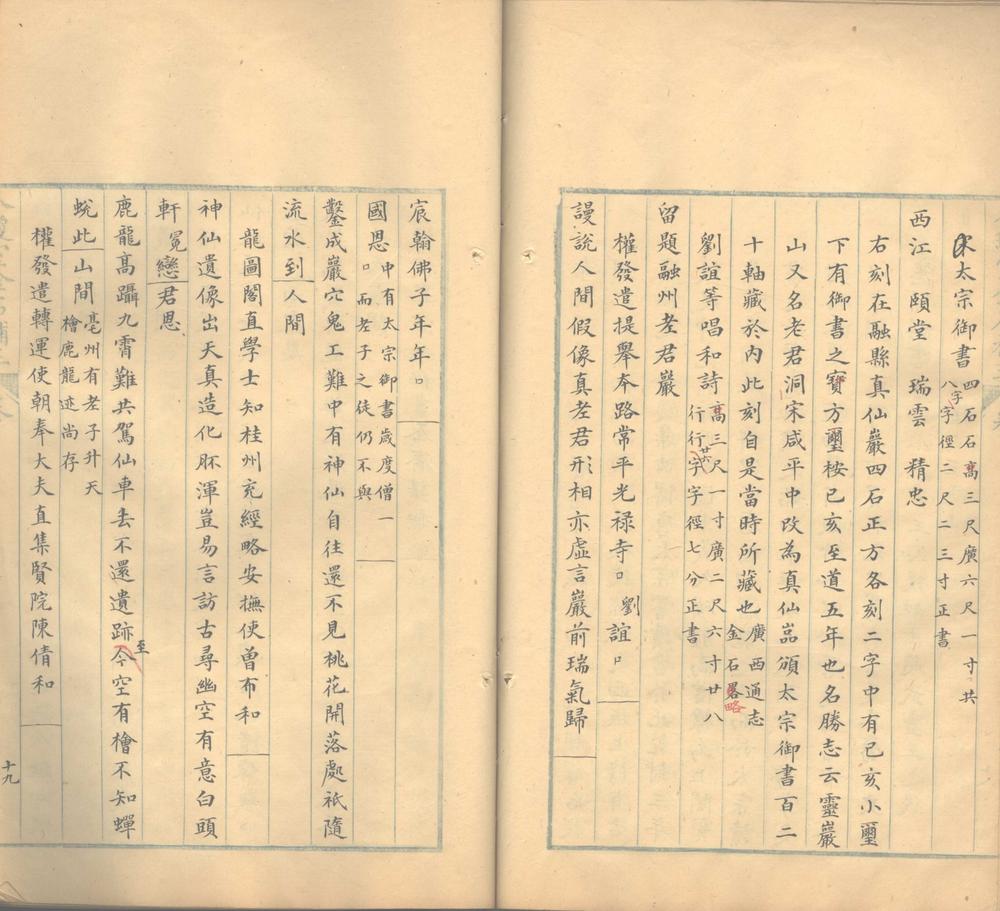 宋太宗御書四石石高三尺廣六尺一寸共
八字字徑二尺二三寸正書
西江 頤堂 瑞雲 精忠
右刻在融縣真仙巖四石正方各刻二字中有已亥小璽
下有御書之寶方璽桉已亥至道五年也名勝志云靈巖
山又名老君洞宋咸平中改為真仙嵓頒太宗御書百二
十軸藏於內此刻自是當時所藏也廣西通志
金石畧略
劉誼等唱和詩高三尺一寸廣二尺六寸廿八
行行廿六字字徑七分正書
留題融州老君巖
權發遣提舉夲路常平光禄寺□劉誼□
謾說人間假像真老君形相亦虛言巖前瑞氣歸
宸翰佛子年年□
國恩□中有太宗御書歲度僧一
而老子之徒仍不與
鑿成巖穴鬼工難中有神仙自往還不見桃花開落處祇隨
流水到人間
龍圖閣直學士知桂州充經略安撫使曾布和
神仙遺像出天真造化胚渾豈易言訪古尋幽空有意白頭
軒冕戀君恩
鹿龍高躡九霄難共駕仙車去不還遺跡至今空有檜不知蟬
蛻此山間亳州有老子升天
檜鹿龍迹尚存
權發遣轉運使朝奉大夫直集賢院陳倩和
十九